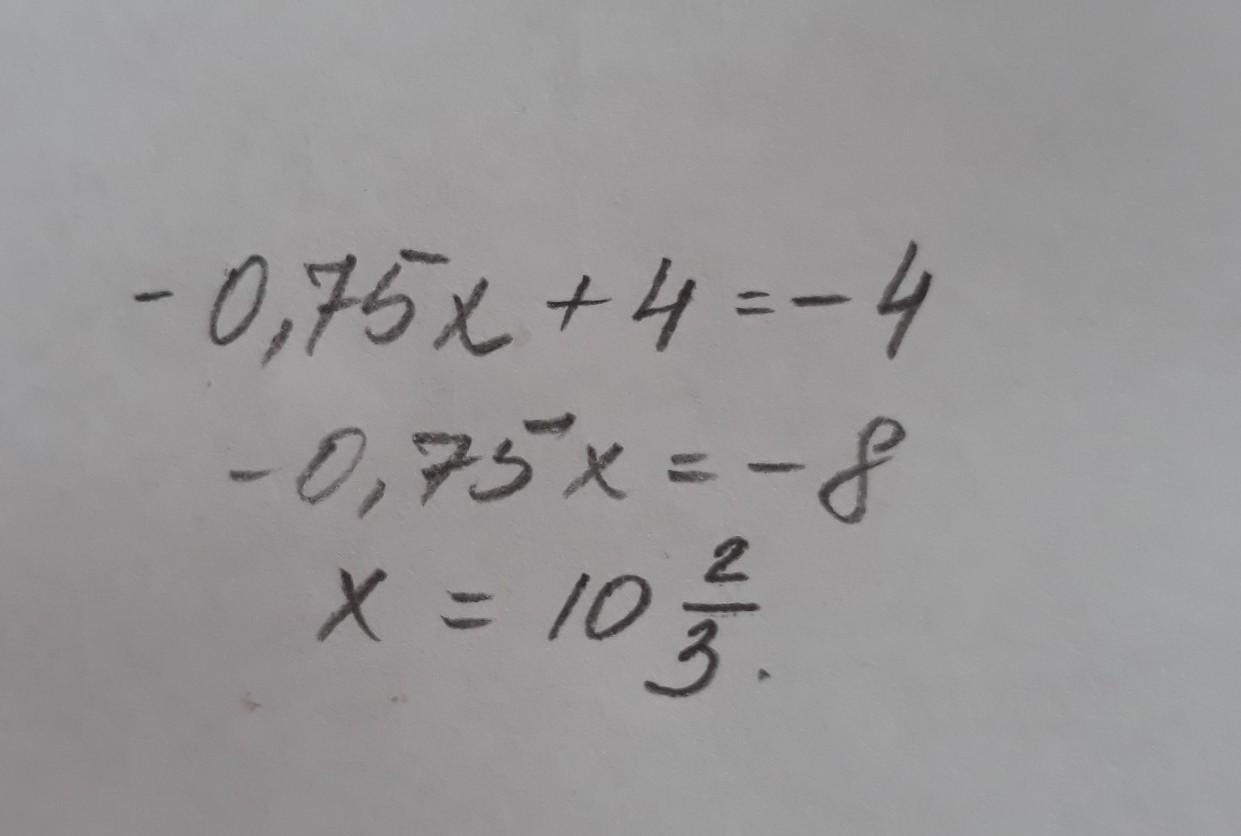 -0,75x + 4 = -4
-0,75x = -8
x = 10 2/3.